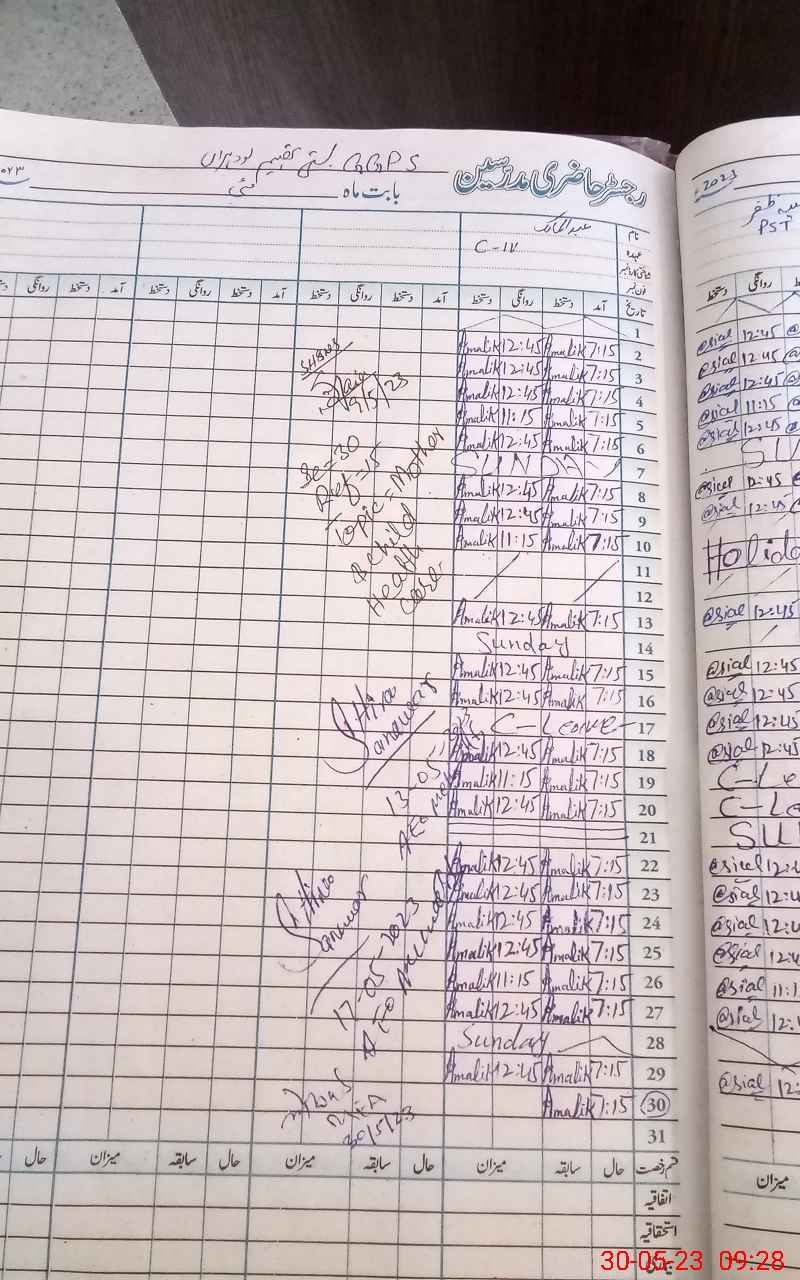 GGPS بستی تقسیم لودہراں
رجسٹر حاضری مدرسین
بابت ماہ مئی
2023
نام عبدالمالک
عہدہ C-IV
شناختی کارڈ نمبر
فون نمبر
PST
تاریخ آمد دستخط روانگی دستخط آمد دستخط روانگی دستخط آمد دستخط روانگی دستخط
1
2 7:15 Amalik 12:45 Amalik
3 7:15 Amalik 12:45 Amalik
4 7:15 Amalik 12:45 Amalik
5 7:15 Amalik 11:15 Amalik
6 7:15 Amalik 12:45 Amalik
7 SUNDAY
8 7:15 Amalik 12:45 Amalik
9 7:15 Amalik 12:45 Amalik
10 7:15 Amalik 11:15 Amalik
11
12
13 7:15 Amalik 12:45 Amalik
14 Sunday
15 7:15 Amalik 12:45 Amalik
16 7:15 Amalik 12:45 Amalik
17 C-Leave
18 7:15 Amalik 12:45 Amalik
19 7:15 Amalik 11:15 Amalik
20 7:15 Amalik 12:45 Amalik
21
22 7:15 Amalik 12:45 Amalik
23 7:15 Amalik 12:45 Amalik
24 7:15 Amalik 12:45 Amalik
25 7:15 Amalik 12:45 Amalik
26 7:15 Amalik 11:15 Amalik
27 7:15 Amalik 12:45 Amalik
28 Sunday
29 7:15 Amalik 12:45 Amalik
30 7:15 Amalik
31
9/5/23
Se=30
Ref=15
Topic=Mother
& child
Health
Care
13-05
AEO
17-05-2023
AEO
30/5/23
قسم رخصت حال سابقہ میزان حال سابقہ میزان حال سابقہ میزان حال
اتفاقیہ
استحقاقیہ
دستخط روانگی
@sial 12:45
@sial 12:45
@sial 12:45
@sial 11:15
@sial 12:45
@sial 12:45
@sial 12:45
@sial 12:45
@sial 12:45
@sial 12:45
@sial 12:45
@sial 12:45
میزان
30-05-23 09:28